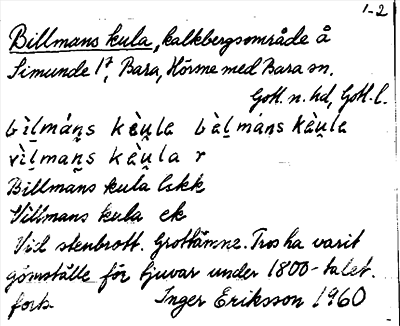 1-2
Billmans kula, kalkbergsområde å
Simunde 1⁊, Bara, Hörsne med Bara sn.
Gotl. n. hd, Gotl. l.
bìl̮mán̮s kèu̮la bàl̮máns kàu̮la
vìl̮man̮s kàu̮la r
Billmans kula lskk
Villmans kula ek
Vid stenbrott. Grottämne. Tros ha varit
gömställe för tjuvar under 1800-talet.
forts. Inger Eriksson 1960